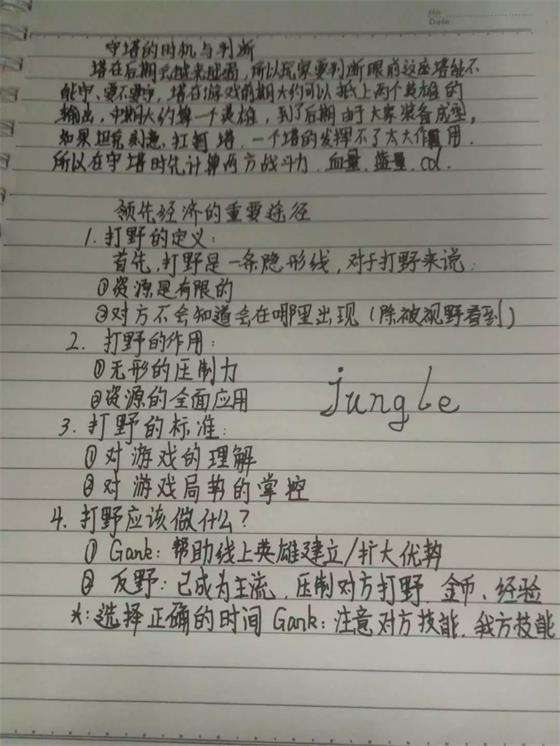 No
Date
守塔的时机与判断
塔在后期会越来越弱,所以玩家要判断眼前这座塔能不
能守,要不要守,塔在游戏前期大约可以抵上两个英雄的
输出,中期大约算一个英雄,到了后期由于大家装备成型,
如果坦克刻意,打打塔,一个塔的发挥不了太大作用.
所以在守塔时先计算两方战斗力,血量、蓝量、cd.
领先经济的重要途径
1.打野的定义:
首先,打野是一条隐形线,对于打野来说:
①资源是有限的
②对方不会知道会在哪里出现(除被视野看到)
2. 打野的作用:
①无形的压制力
②资源的全面应用
jungle
3.打野的标准:
①对游戏的理解
②对游戏局势的掌控
4.打野应该做什么?
① Gank:帮助线上英雄建立/扩大优势
② 反野:已成为主流,压制对方打野 金币、经验
*:选择正确的时间Gank:注意对方技能,我方技能